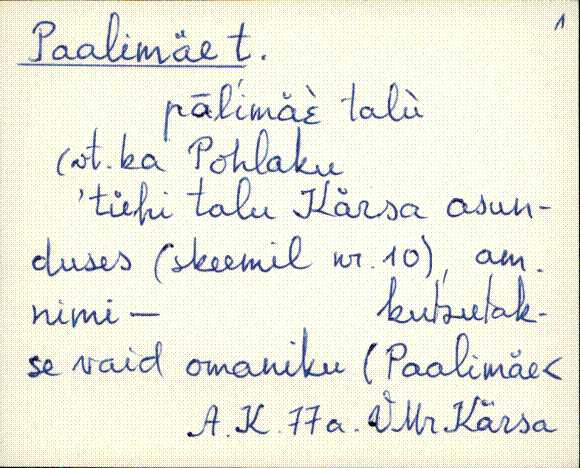 1
Paalimäe t.
pāĺimäè talù
(vt. ka Pohlaku
'tüh́i talu Kärsa asun-
duses (skeemil nr. 10), am.
nimi — kutsutak-
se vaid omaniku (Paalimäe<
A. K. 77a. VMr Kärsa